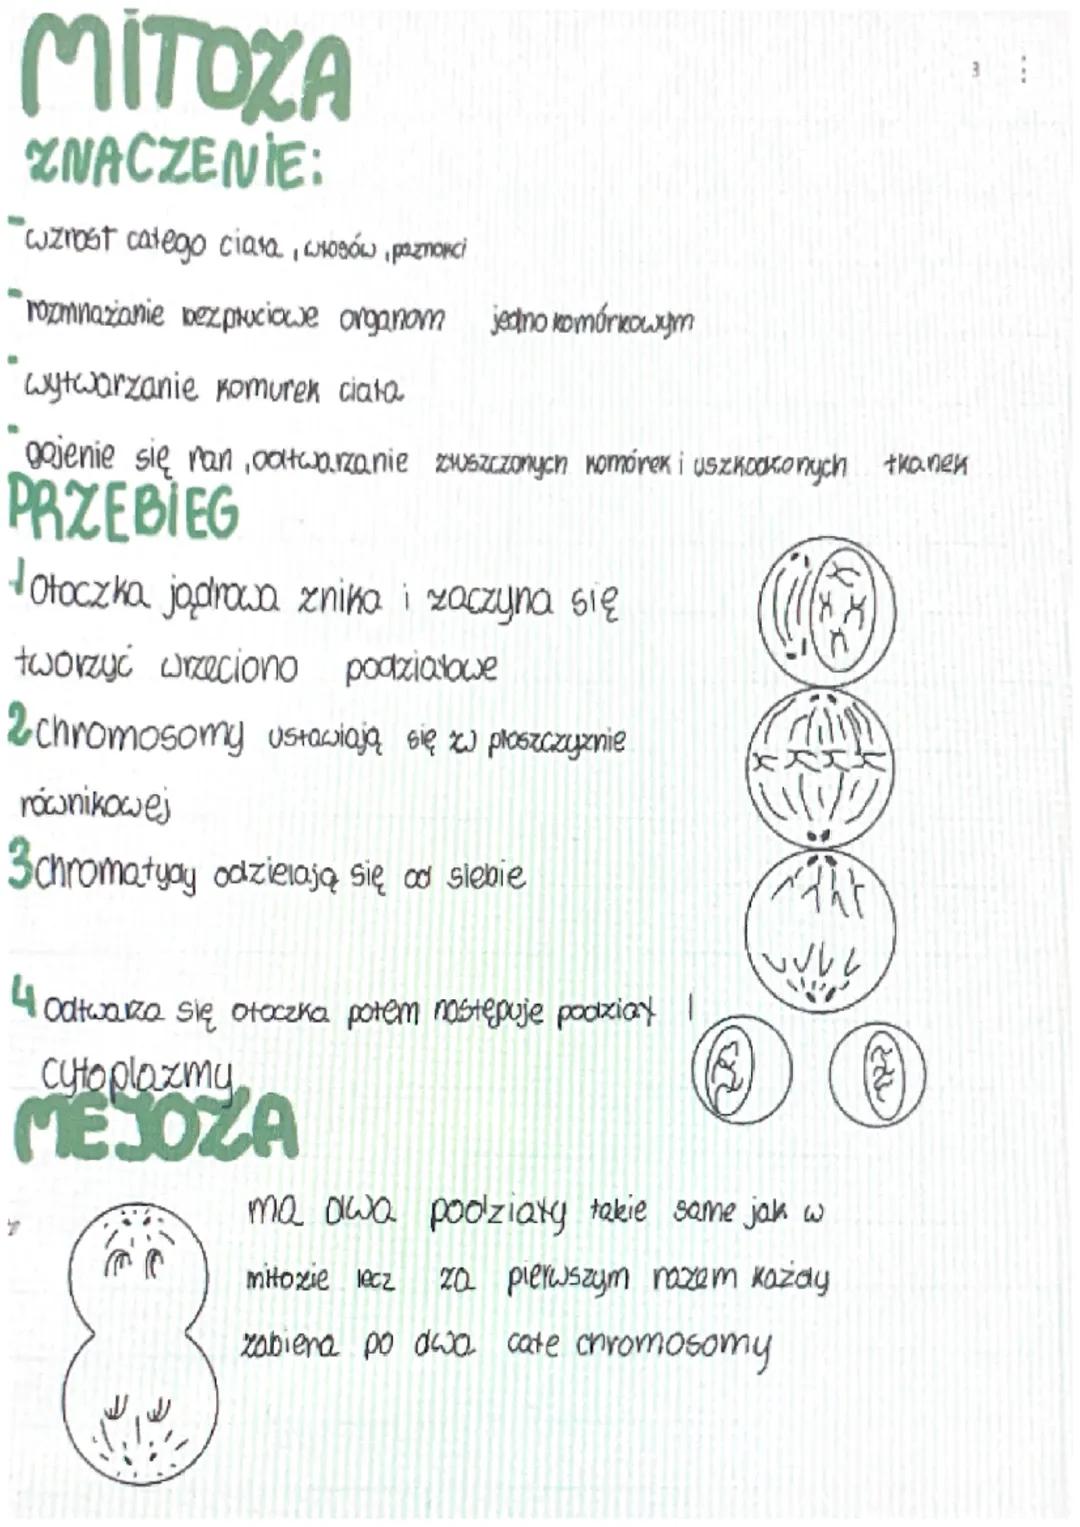 MITOZA
3
ZNACZENIE:
-wzrost całego ciała, włosów, paznokci
-rozmnażanie bezpłuciowe organom jednokomórkowym
-wytwarzanie komurek ciała
-gojenie się ran, odtwarzanie zwszczonych komórek i uszkodzonych tkanek
PRZEBIEG
1 Otoczka jądrowa znika i zaczyna się
tworzyć wrzeciono podziałowe
2 chromosomy ustawiają się w płaszczyznie
równikowej
3 chromatydy odzielają się od siebie
4 Odtwarza się otoczka potem następuje podział
cytoplazmy
MEJOZA
ma dwa podziały takie same jak w
mitozie lecz za pierwszym razem każdy
zabiera po dwa całe chromosomy